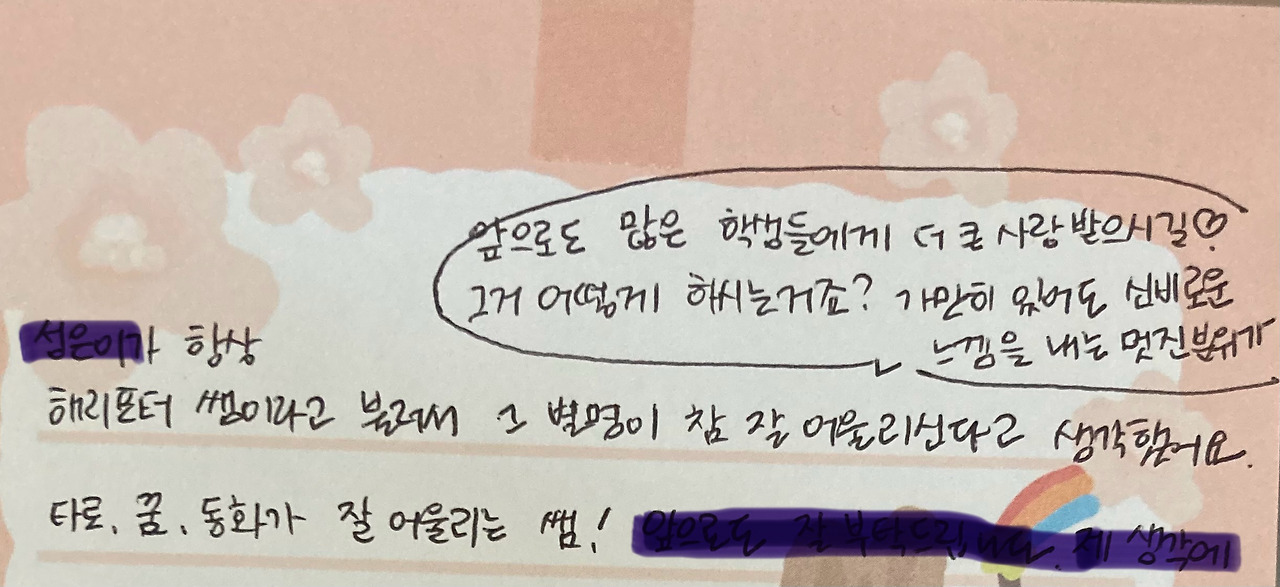 앞으로도 많은 학생들에게 더 큰 사랑 받으시길♡
그거 어떻게 하시는거죠? 가만히 있어도 신비로운
느낌을 내는 멋진분위기
가 항상
해리포터 쌤이라고 불러서 그 별명이 참 잘 어울리신다고 생각했어요.
타로, 꿈, 동화가 잘 어울리는 쌤! 앞으로도 잘 부탁드립니다. 제 생각에